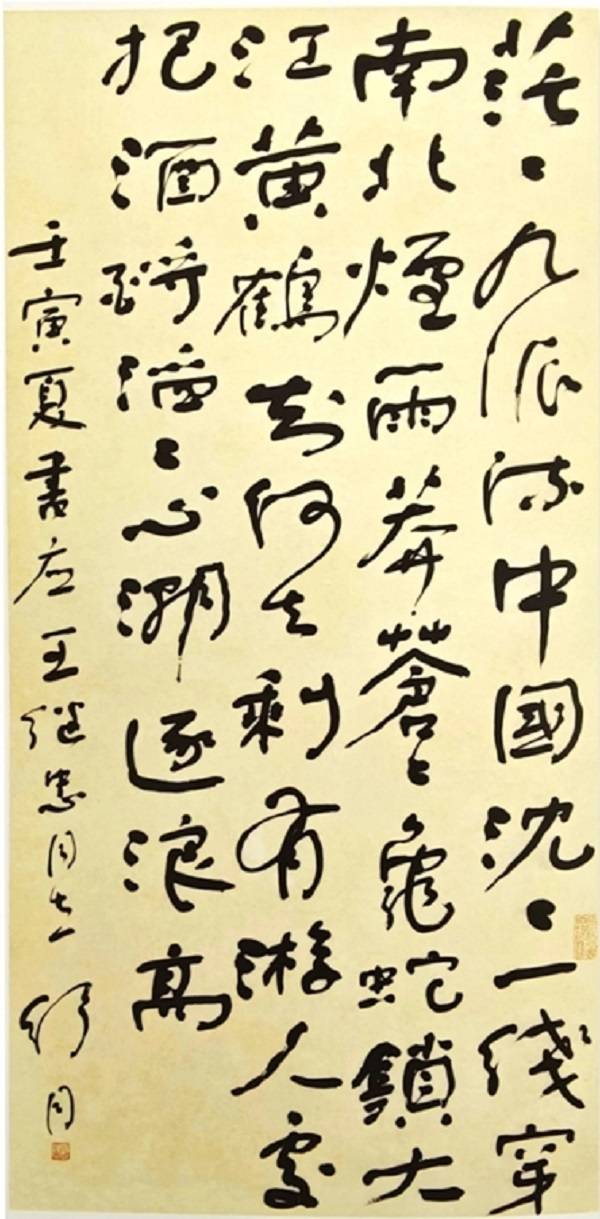 茫〻九派流中國沈〻一綫穿
南北煙雨莽蒼〻龜蛇鎖大
江黄鶴知何去剩有游人處
把酒酹滔〻心潮逐浪高
壬寅夏書应王继忠同志 舒同